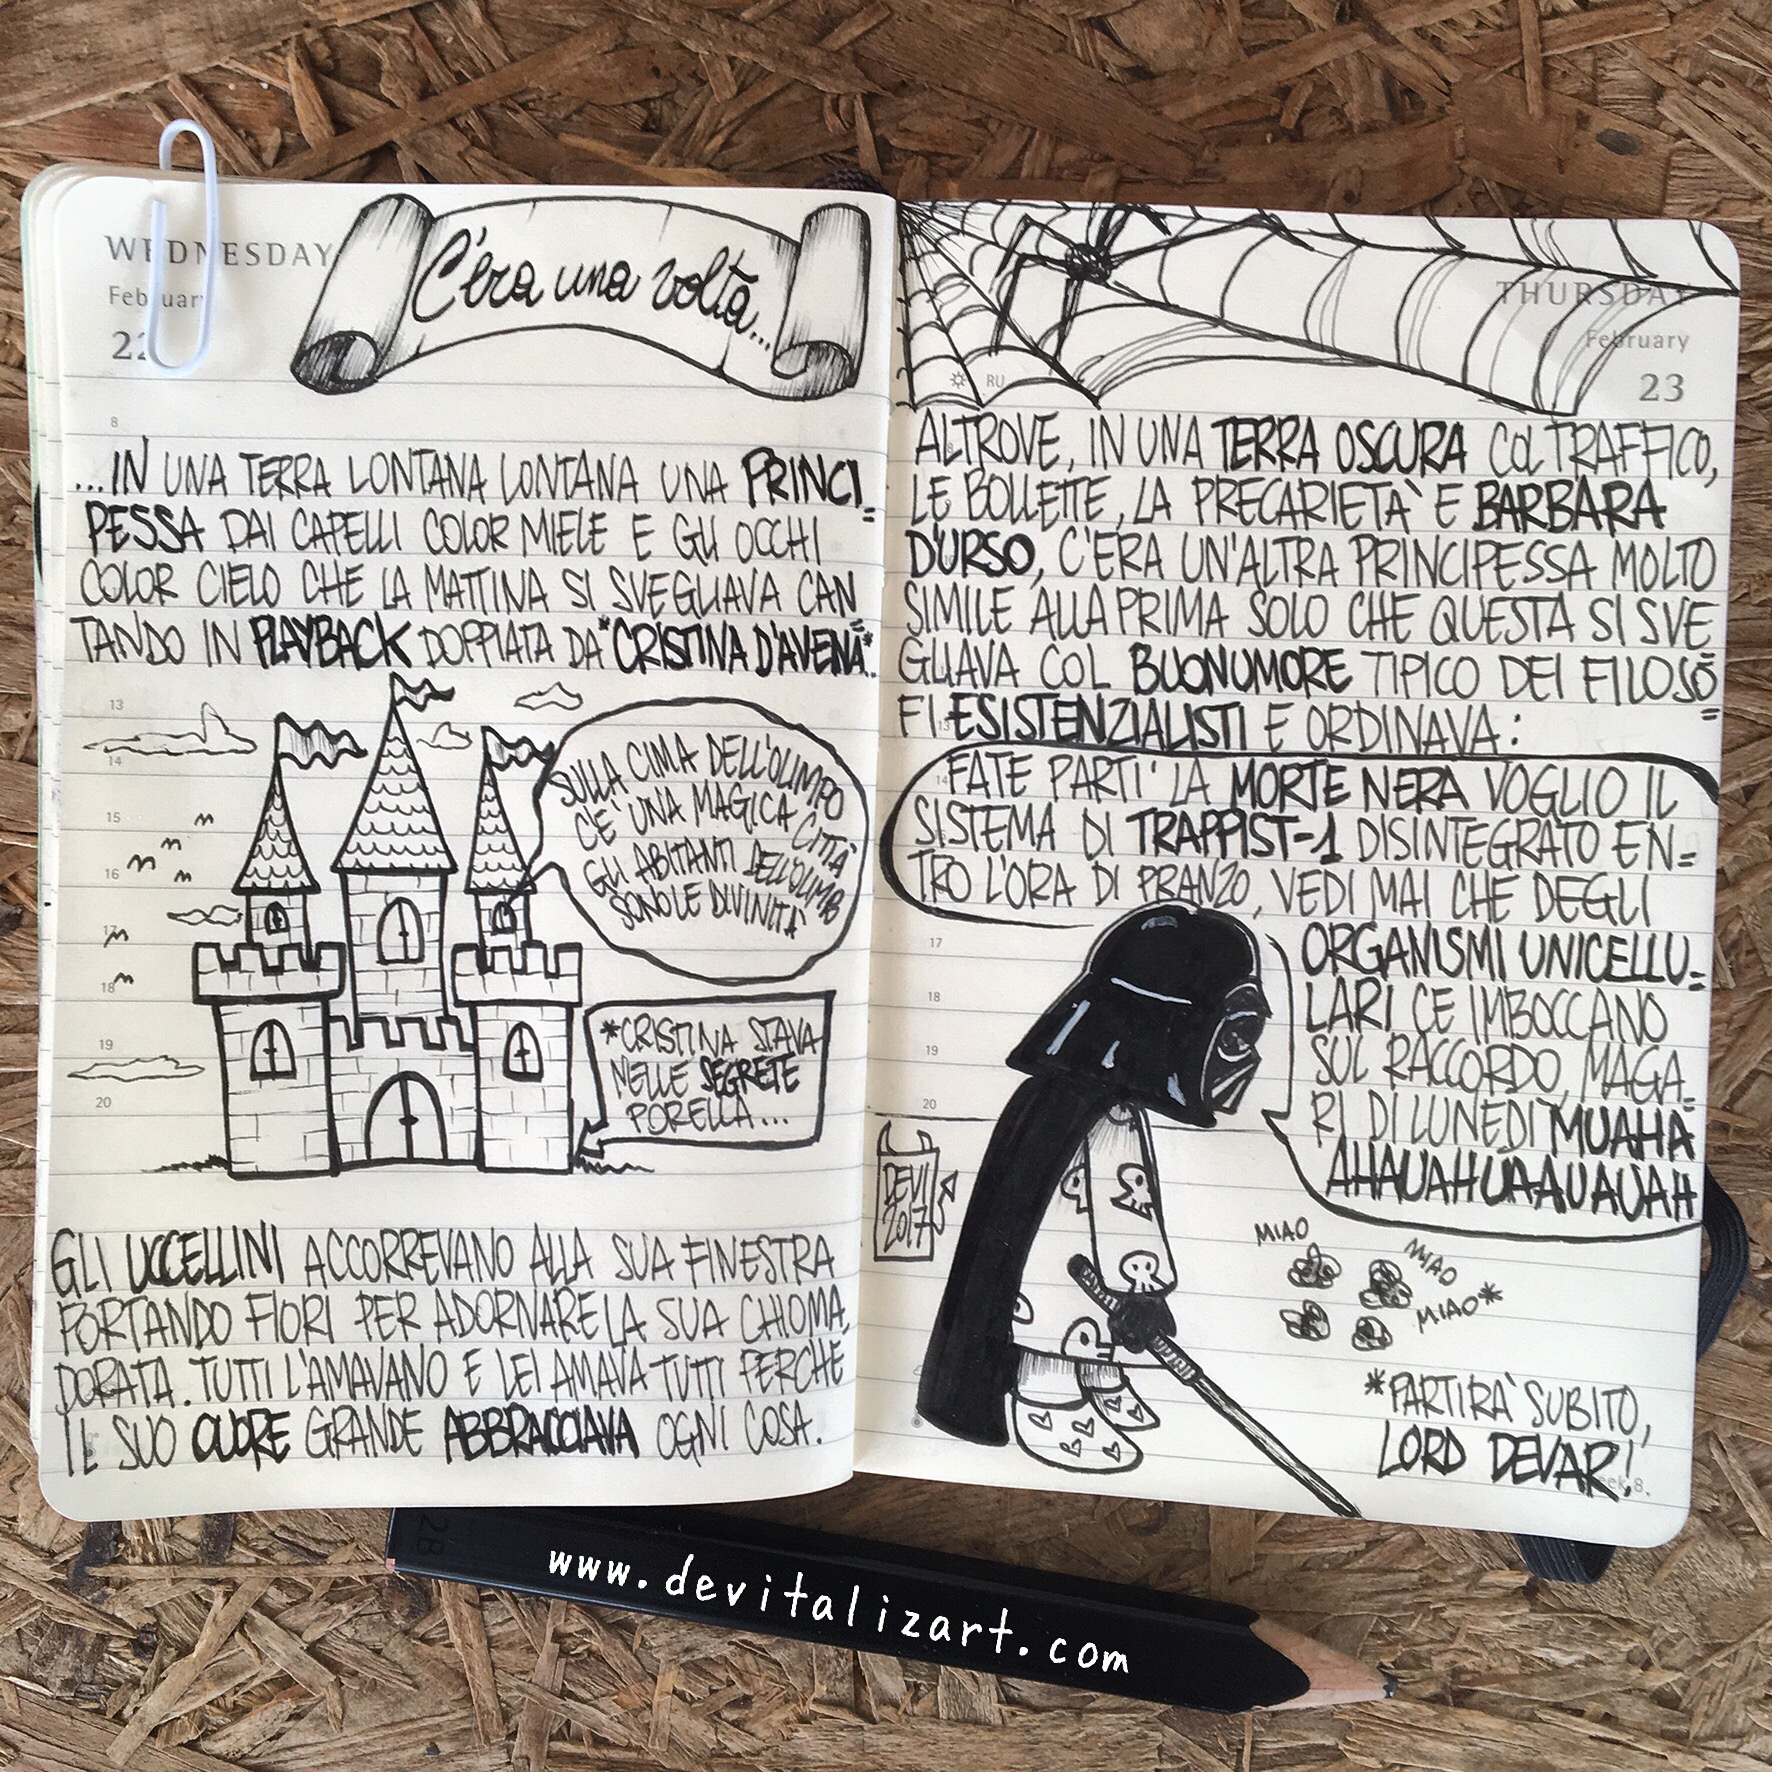 WEDNESDAY
February
22
C'era una volta...
8
...IN UNA TERRA LONTANA LONTANA UNA PRINCI=
PESSA DAI CAPELLI COLOR MIELE E GLI OCCHI
COLOR CIELO CHE LA MATTINA SI SVEGLIAVA CAN=
TANDO IN PLAYBACK DOPPIATA DA *CRISTINA D'AVENA*..
13
14
15
16
17
18
19
20
SULLA CIMA DELL'OLIMPO
C'E' UNA MAGICA CITTA'
GLI ABITANTI DELL'OLIMPO
SONO LE DIVINITA'
*CRISTINA STAVA
NELLE SEGRETE
PORELLA...
GLI UCCELLINI ACCORREVANO ALLA SUA FINESTRA
PORTANDO FIORI PER ADORNARE LA SUA CHIOMA
DORATA. TUTTI L'AMAVANO E LEI AMAVA TUTTI PERCHÉ
IL SUO CUORE GRANDE ABBRACCIAVA OGNI COSA.
THURSDAY
February
23
RU
ALTROVE, IN UNA TERRA OSCURA COL TRAFFICO,
LE BOLLETTE, LA PRECARIETA' E BARBARA
D'URSO, C'ERA UN'ALTRA PRINCIPESSA MOLTO
SIMILE ALLA PRIMA SOLO CHE QUESTA SI SVE=
GLIAVA COL BUONUMORE TIPICO DEI FILOSO=
FI ESISTENZIALISTI E ORDINAVA:
14
FATE PARTI' LA MORTE NERA VOGLIO IL
SISTEMA DI TRAPPIST-1 DISINTEGRATO EN=
TRO L'ORA DI PRANZO, VEDI MAI CHE DEGLI
ORGANISMI UNICELLU=
LARI CE IMBOCCANO
SUL RACCORDO, MAGA=
RI DI LUNEDI' MUAHA
AHAUAHUAAUAUAH
17
18
19
20
DEVI
2017
MIAO
MIAO
MIAO*
*PARTIRA' SUBITO,
LORD DEVAR!
eek 8.
2B
www.devitalizart.com